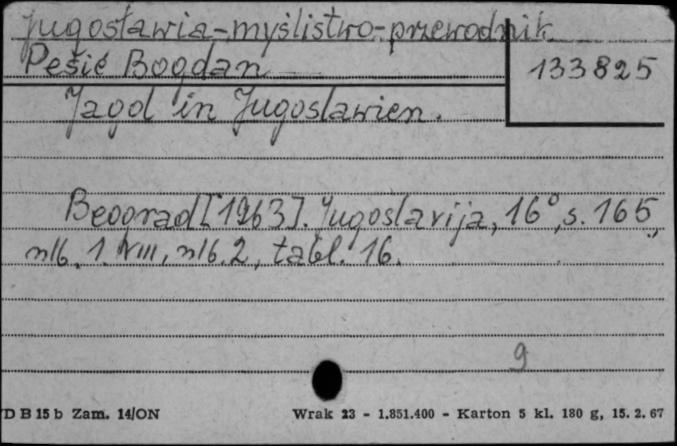 Jugosławia-myślistwo-przewodnik
Pešić Bogdan
133825
Jagd in Jugoslawien.
Beograd [1963]. Jugoslavija, 16°, s. 165,
nlb. 1. VIII, nlb. 2, tabl. 16.
9
D B 15 b Zam. 14/ON
Wrak 23 - 1.851.400 - Karton 5 kl. 180 g, 15. 2. 67